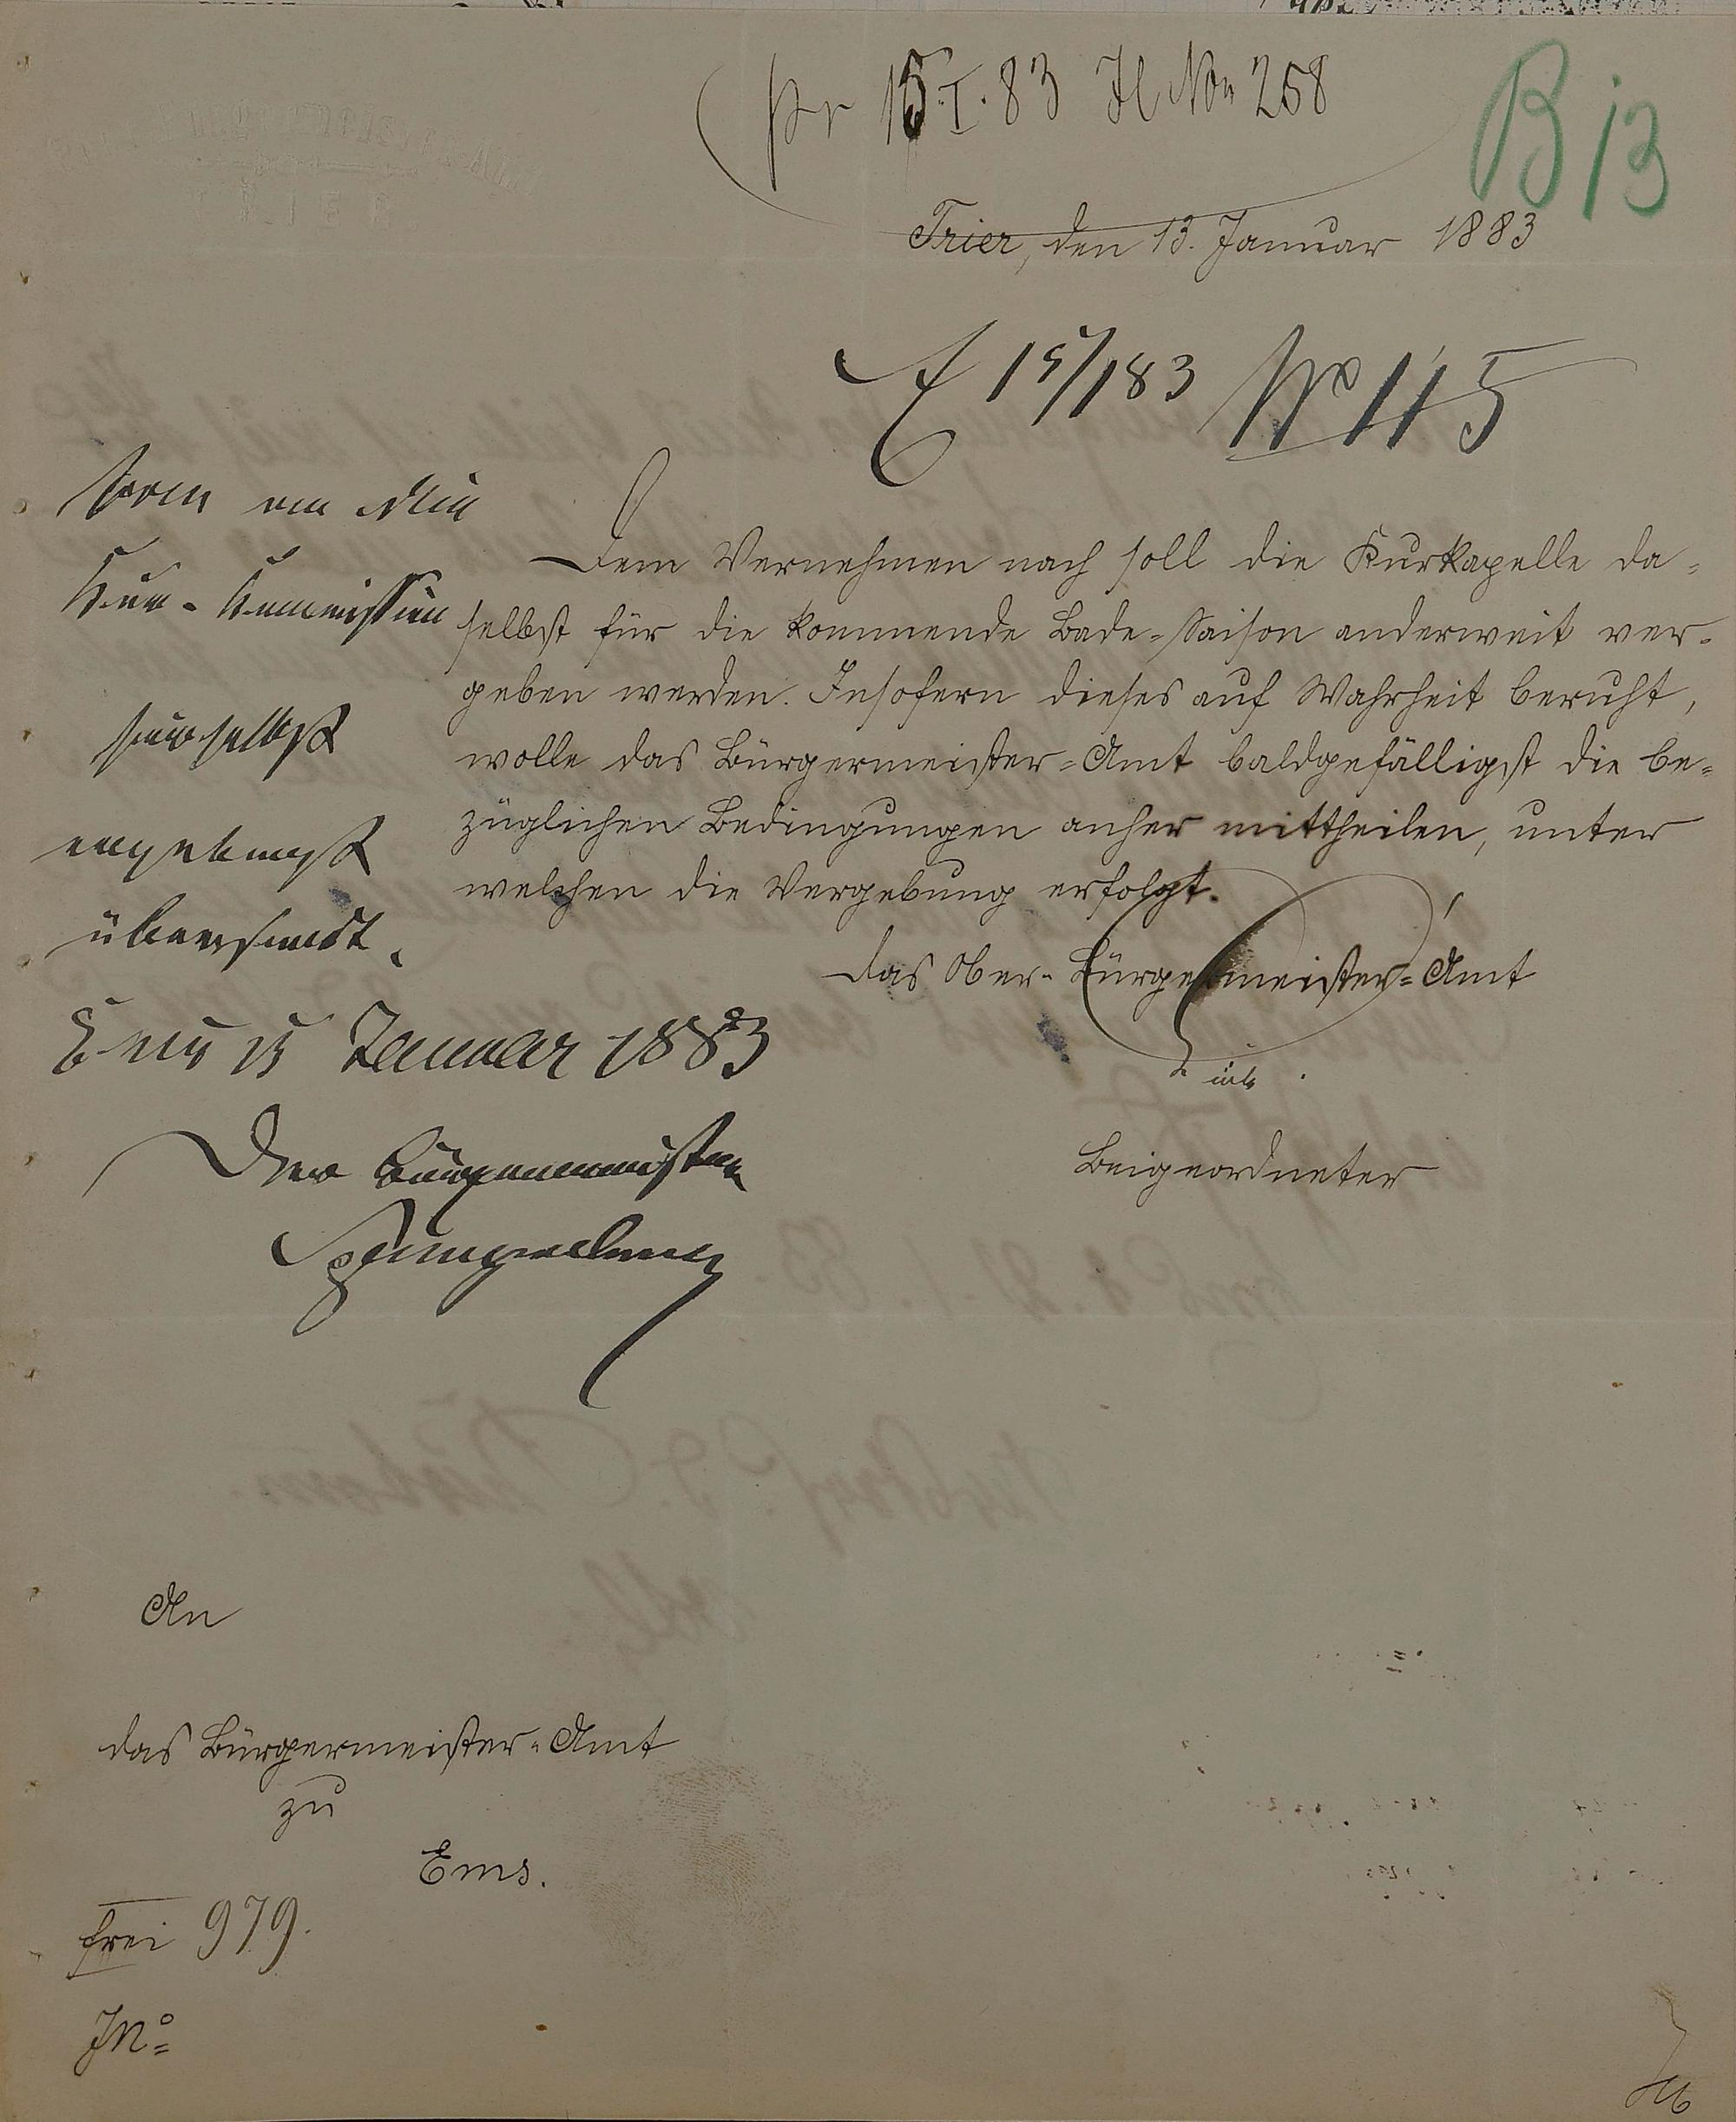 pr 15.I.83 Jl No 258
B 13
Trier, den 13. Januar 1883
E 15/1 83 No 115
Dem Vernehmen nach soll die Kurkapelle da-
selbst für die kommende Bade-Saison anderweit ver-
geben werden. Insofern dieses auf Wahrheit beruht,
wolle das Bürgermeister-Amt baldgefälligst die be-
züglichen Bedingungen anher mittheilen, unter
welchen die Vergebung erfolgt.
Das Ober-Bürgermeister-Amt
Beigeordneter
Kur-Kommission
hierselbst
ergebenst
übersandt.
Ems 15 Januar 1883
Der Bürgermeister
Spangenberg
An
das Bürgermeister-Amt
zu
Ems.
frei 979.
JNo